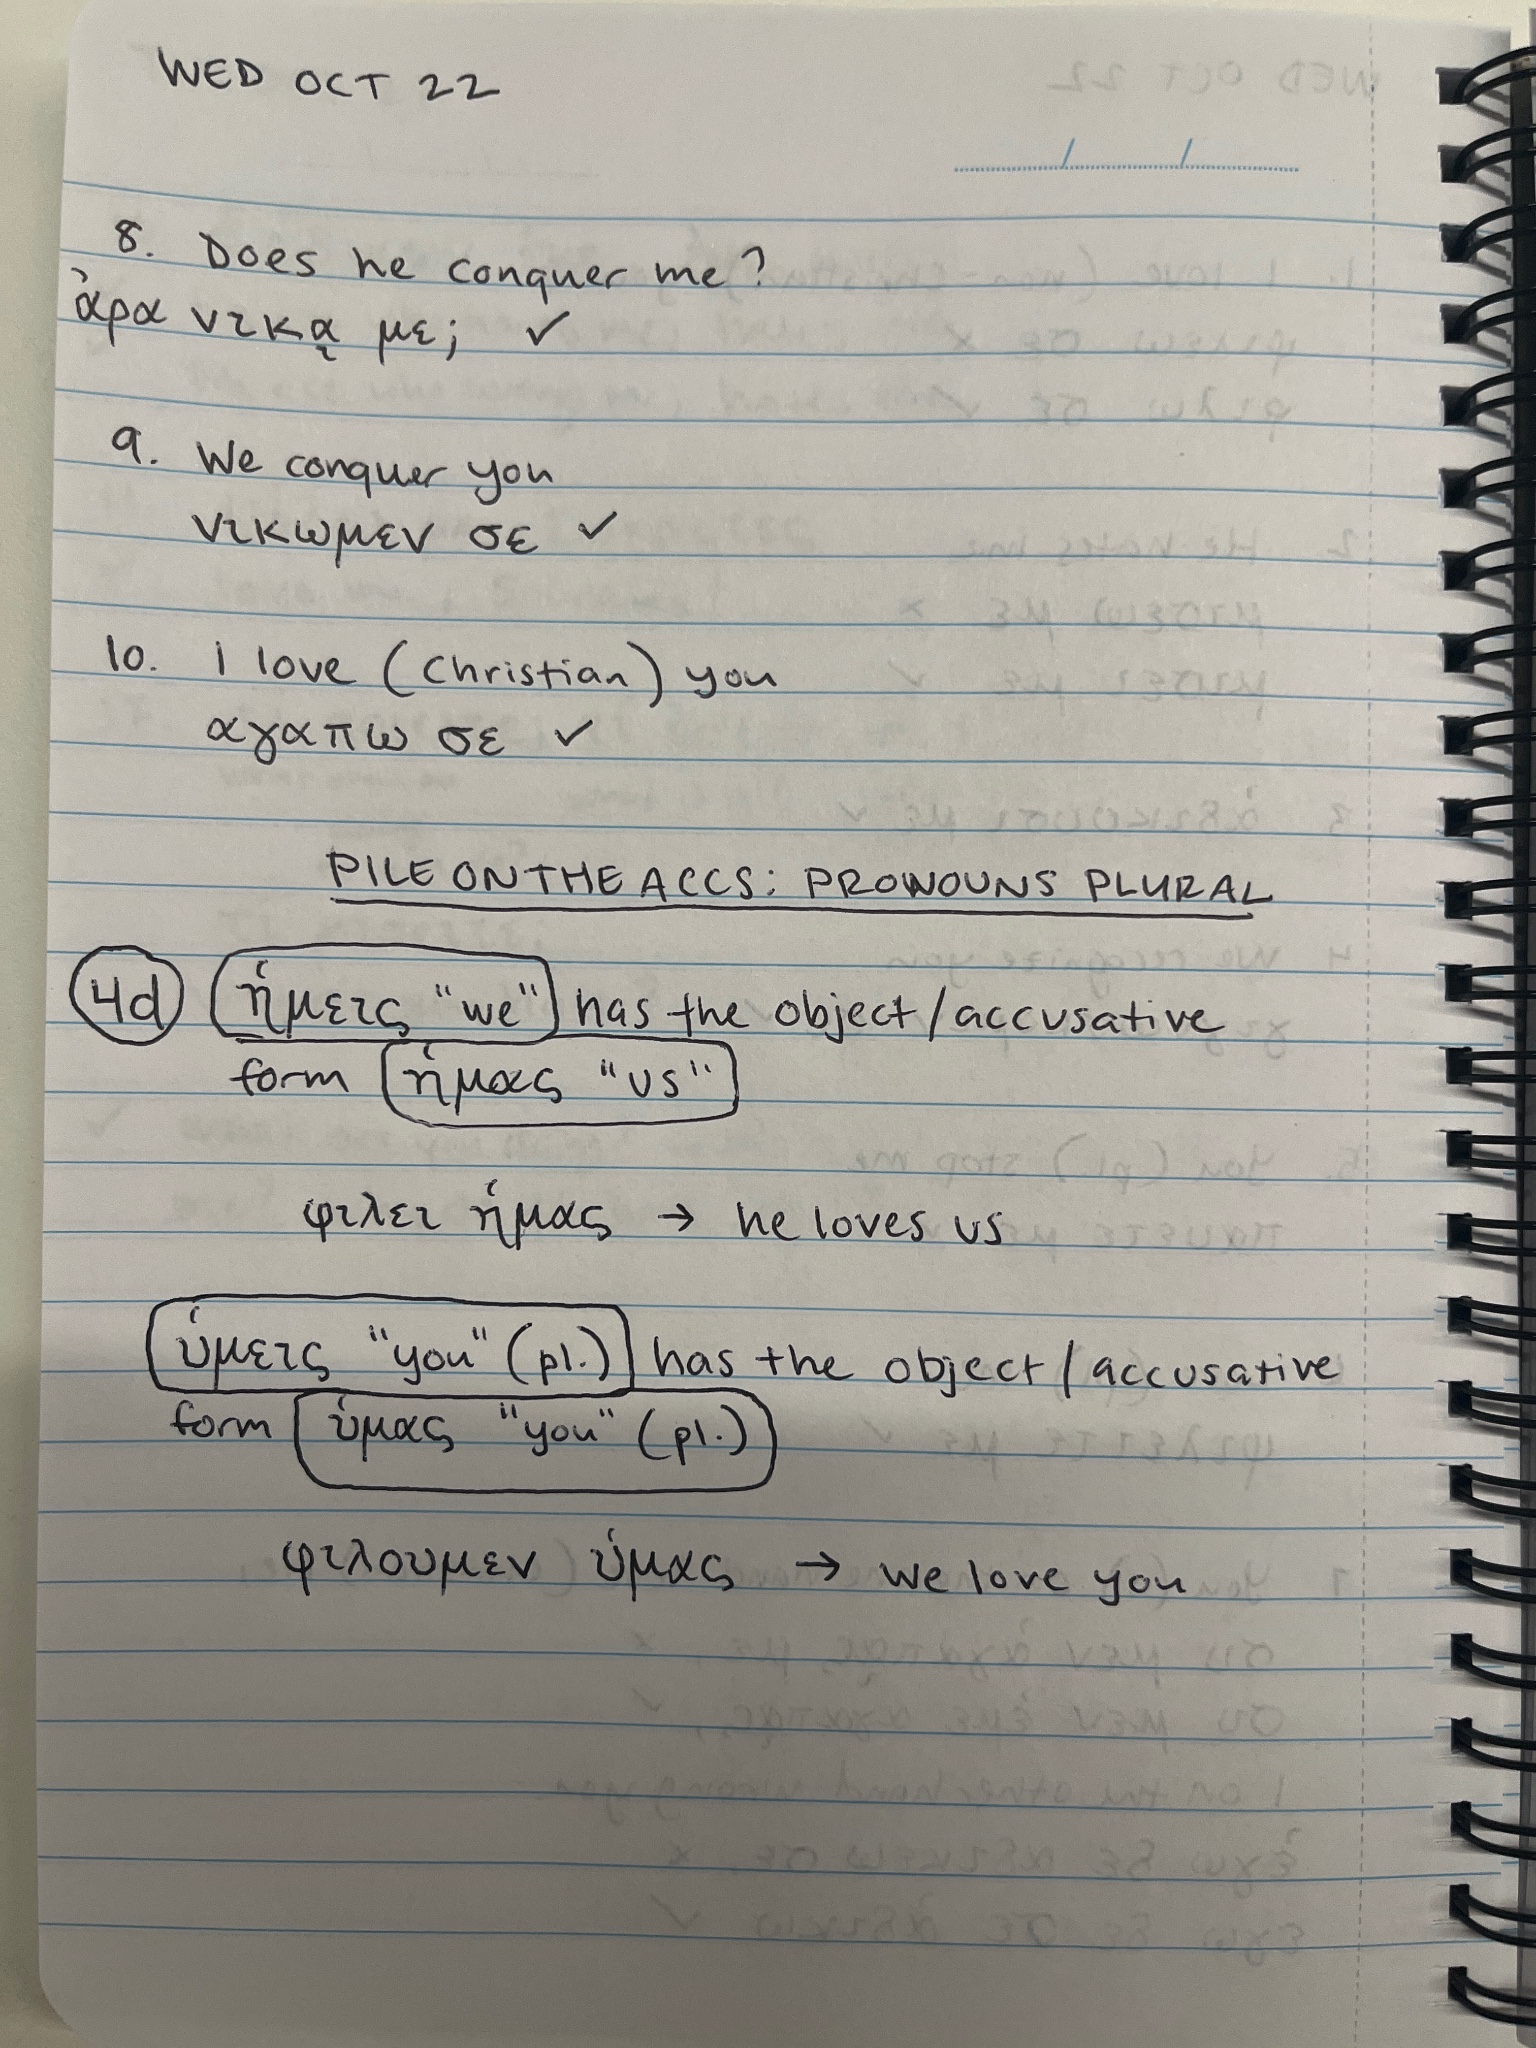 WED OCT 22
8. Does he conquer me?
ἀρα νικᾳ με; ✓
9. We conquer you
νικωμεν σε ✓
10. I love (Christian) you
αγαπω σε ✓
PILE ON THE ACCS: PRONOUNS PLURAL
4d ἡμεις "we" has the object/accusative
form ἡμας "us"
φιλει ἡμας → he loves us
ὑμεις "you" (pl.) has the object/accusative
form ὑμας "you" (pl.)
φιλουμεν ὑμας → we love you